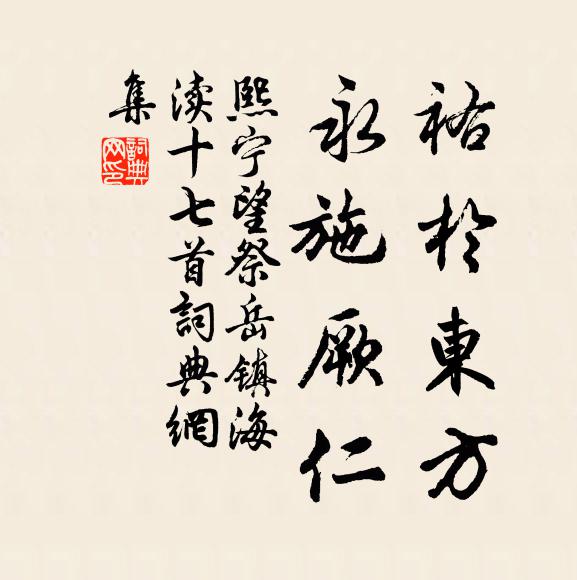 祐於東方
永施厥仁
熙宁望祭岳镇海
渎十七首詞典網
集
詞典网印